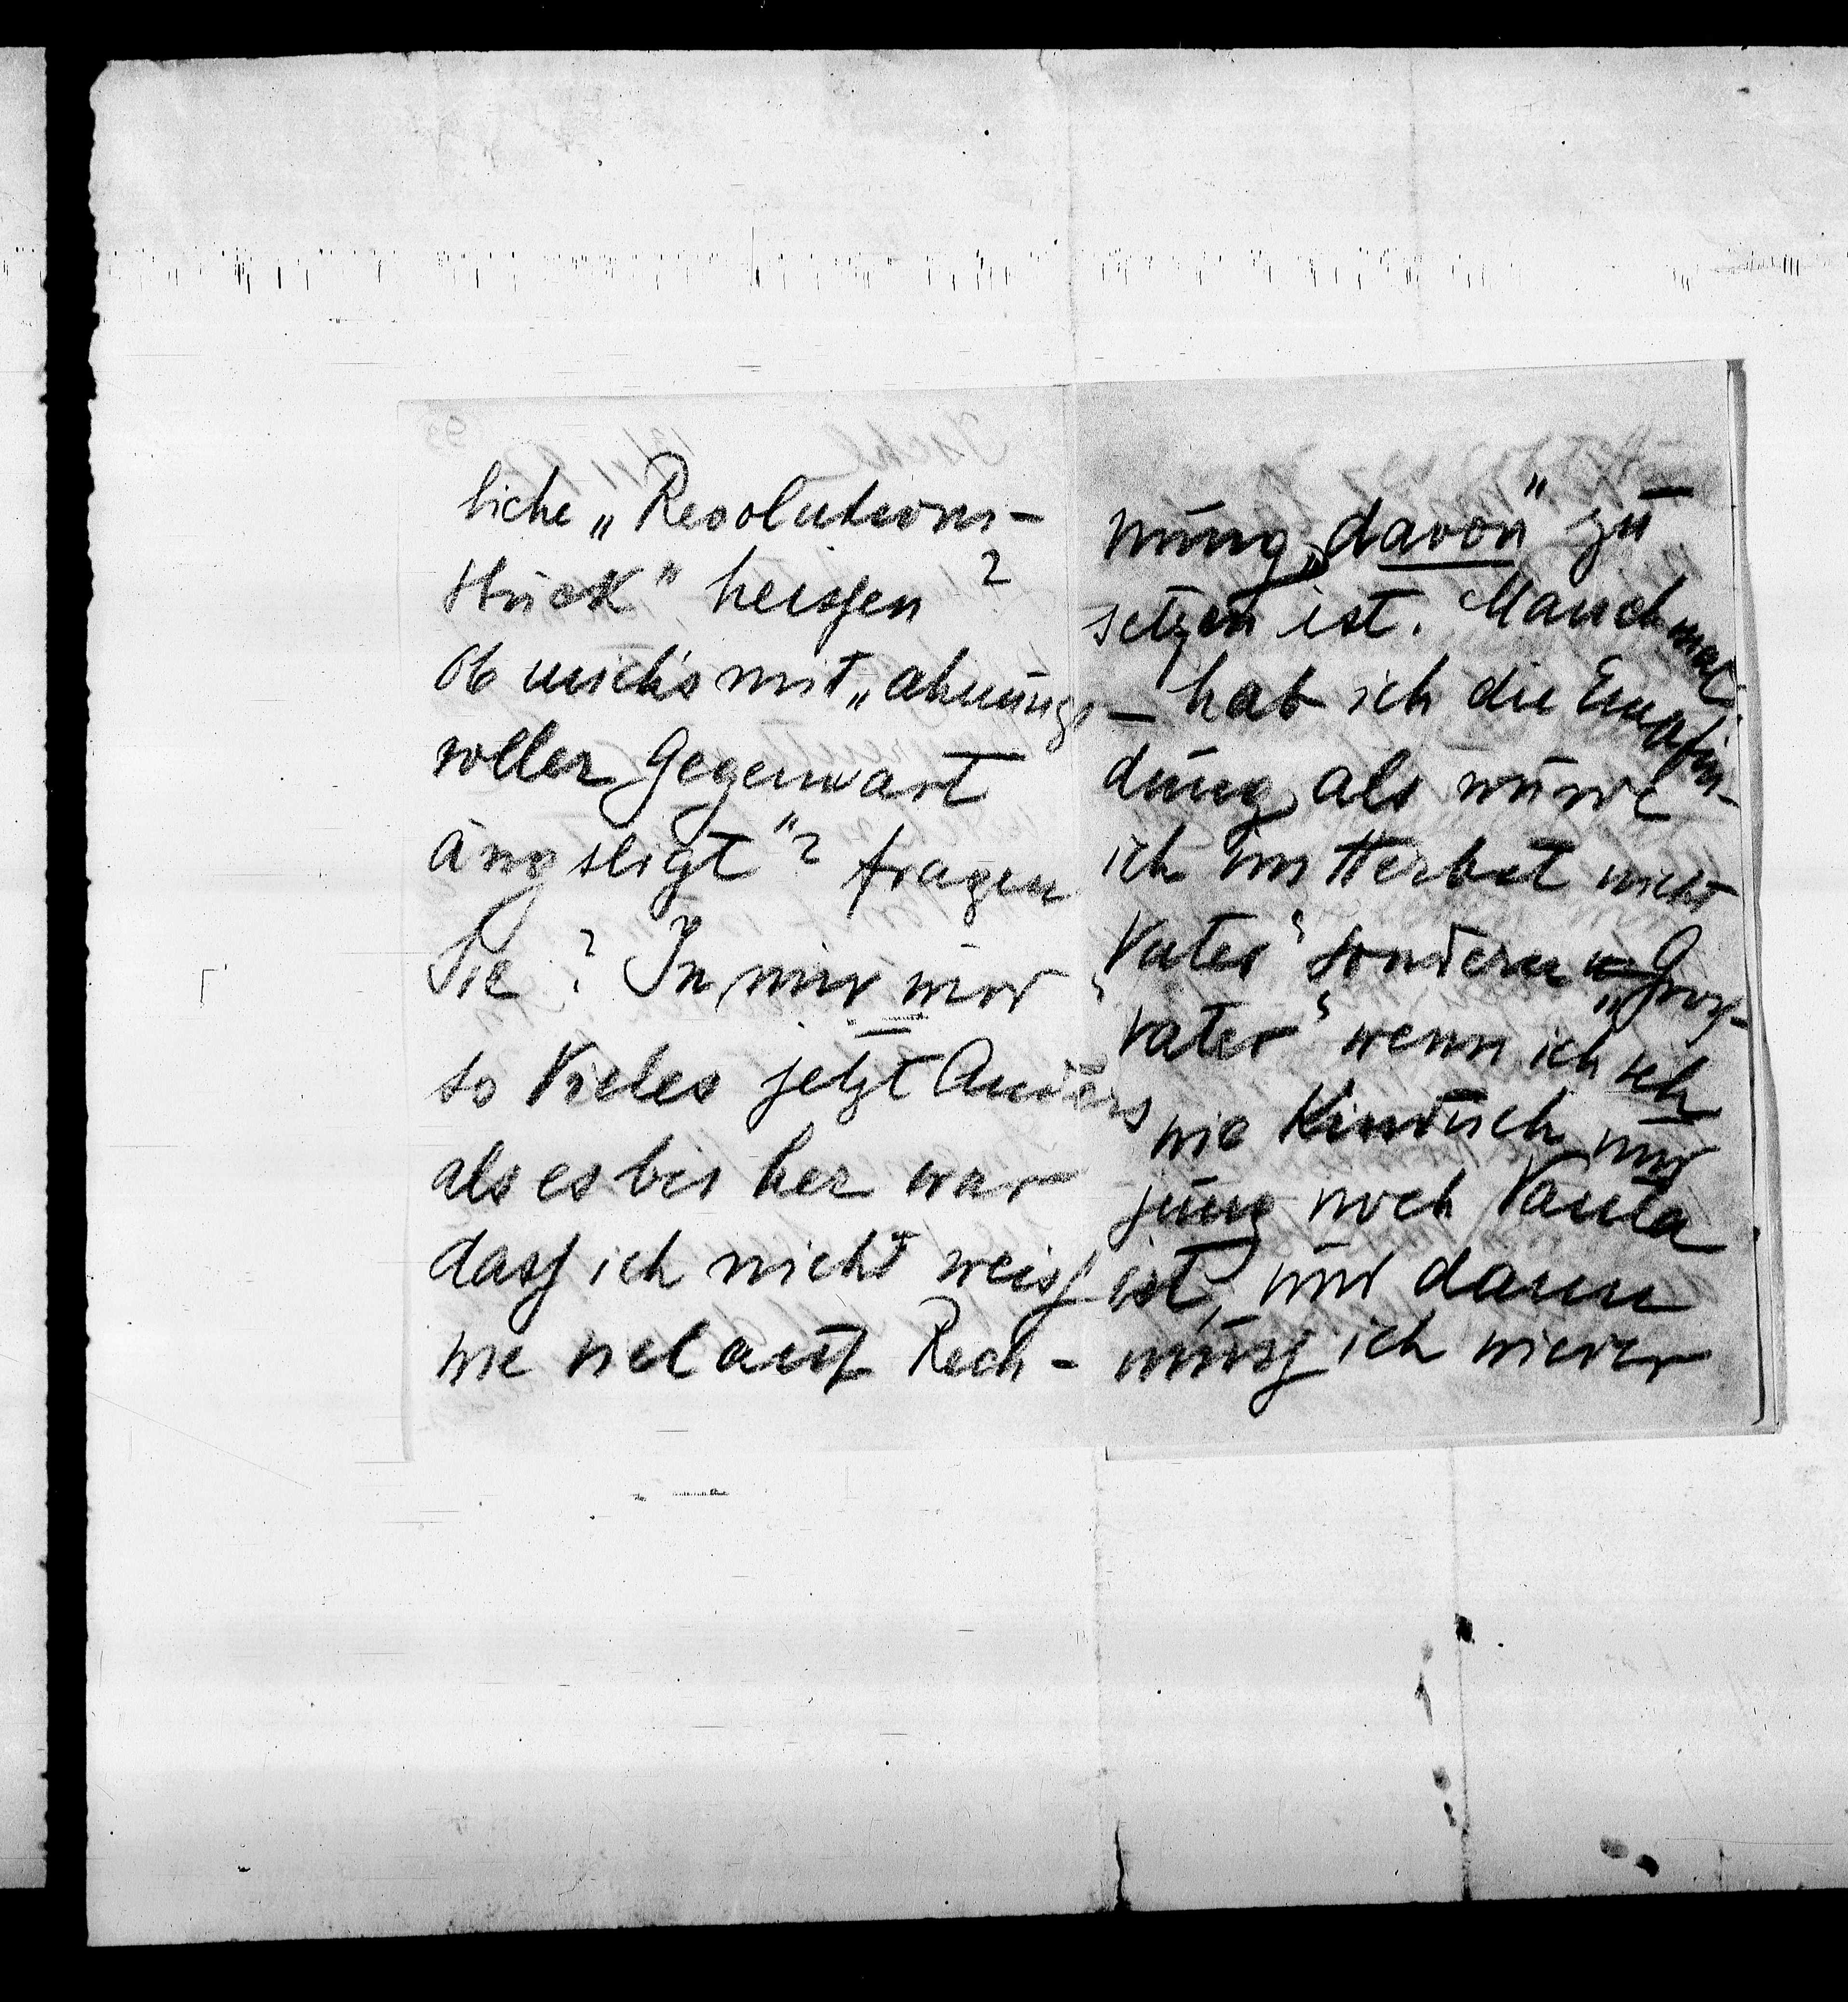 liche „Revolutions-
stück" heissen?
Ob mich's mit „ahnungs-
voller Gegenwart
ängstigt"? fragen
Sie? In mir wird
so Vieles jetzt Anders
als es bis her war
dass ich nicht weiss
wie viel auf Rech-
nung „davon" zu
setzen ist. Manchmal
hab ich die Empfin-
dung als würde
ich im Herbst nicht
"Vater" sondern „Gross-
vater" wenn ich seh
wie Kindisch und
jung noch Paula
ist, und dann
muss ich wieder